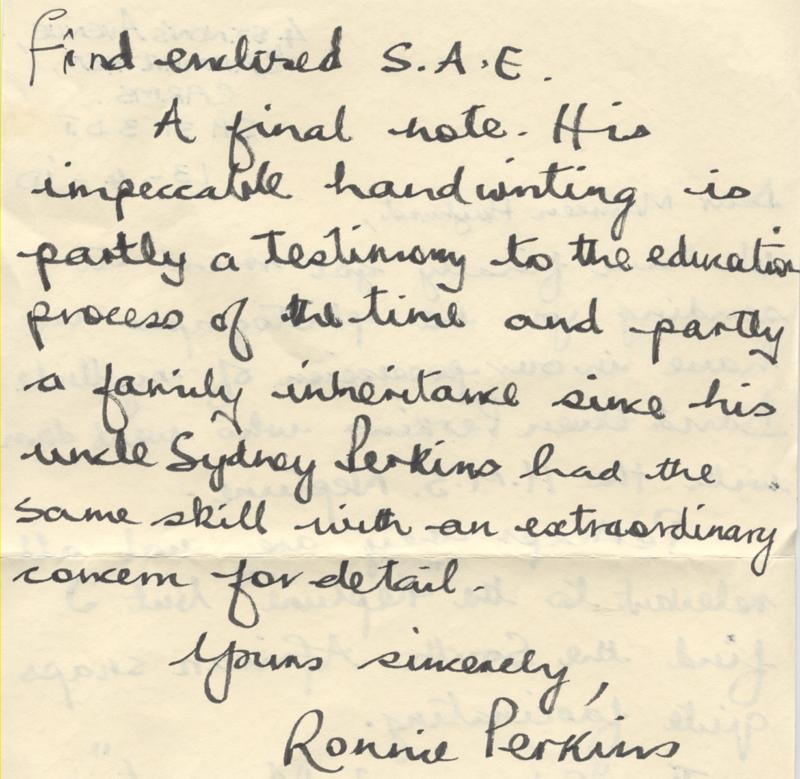 find enclosed S.A.E.
A final note. His
impeccable handwriting is
partly a testimony to the education
process of the time and partly
a family inheritance since his
uncle Sydney Perkins had the
same skill with an extraordinary
concern for detail.
Yours sincerely,
Ronnie Perkins